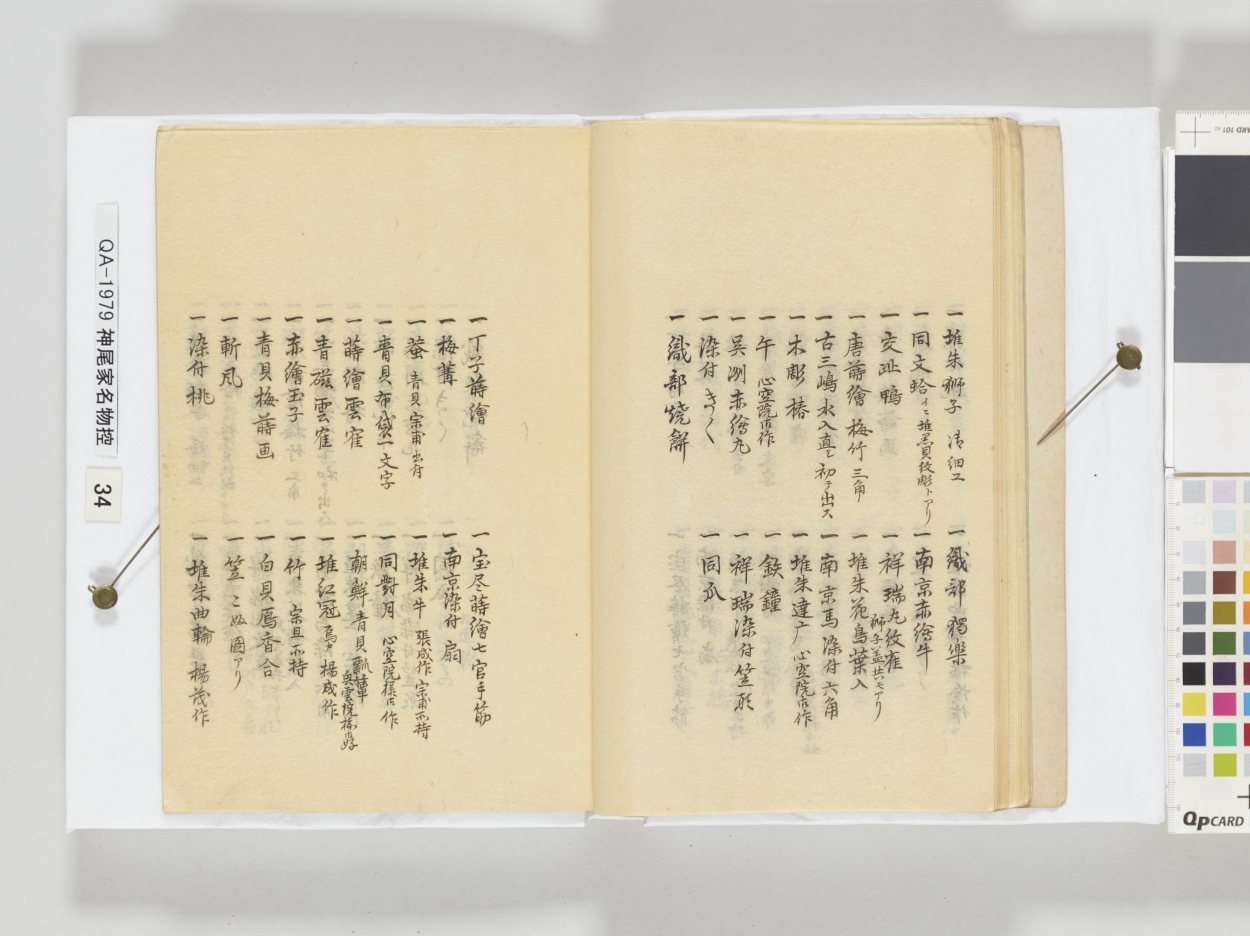 一堆朱獅子 清細工
一同文蛤 イニ堆黒貝紋彫トアリ
一交趾鴨
一唐蒔繪 梅竹三角
一古三嶋水入真ニ初テ出ス
一木彫椿
一午 心空院古作
一呉洲赤繪丸
一染付きつく
一織部焼餅
一織部獨樂
一南京赤繪牛
一祥瑞丸紋雀 獅子蓋共ニモアリ
一堆朱花鳥葉入
一南京馬染付六角
一堆朱達广 心空院古作
一鉄鐘
一祥瑞染付笠形
一同瓜
一丁子蒔繪
一梅
一螢 青貝宗甫書付
一青貝布袋一文字
一蒔繪雲隺
一青磁雲隺
一赤繪玉子
一青貝梅蒔画
一斬凨
一染付桃
一宝尽蒔繪七官手筋
一南京染付扇
一堆朱牛 張成作宗甫所持
一同對月 心空院様古作
一朝鮮青貝 奥雲院様御好
一堆紅冠 鳥カ 楊成作
一竹 宗旦所持
一白貝馬香合
一笠 こぬ圖アリ
一堆朱曲輪 楊茂作
QA-1979 神尾家名物控
34
QPCARD
CARD 101